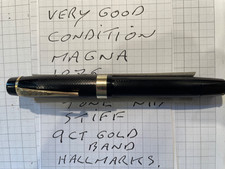 VERY GOOD
CONDITION
MAGNA
STIFF
9CT GOLD
BAND
HALLMARKS.